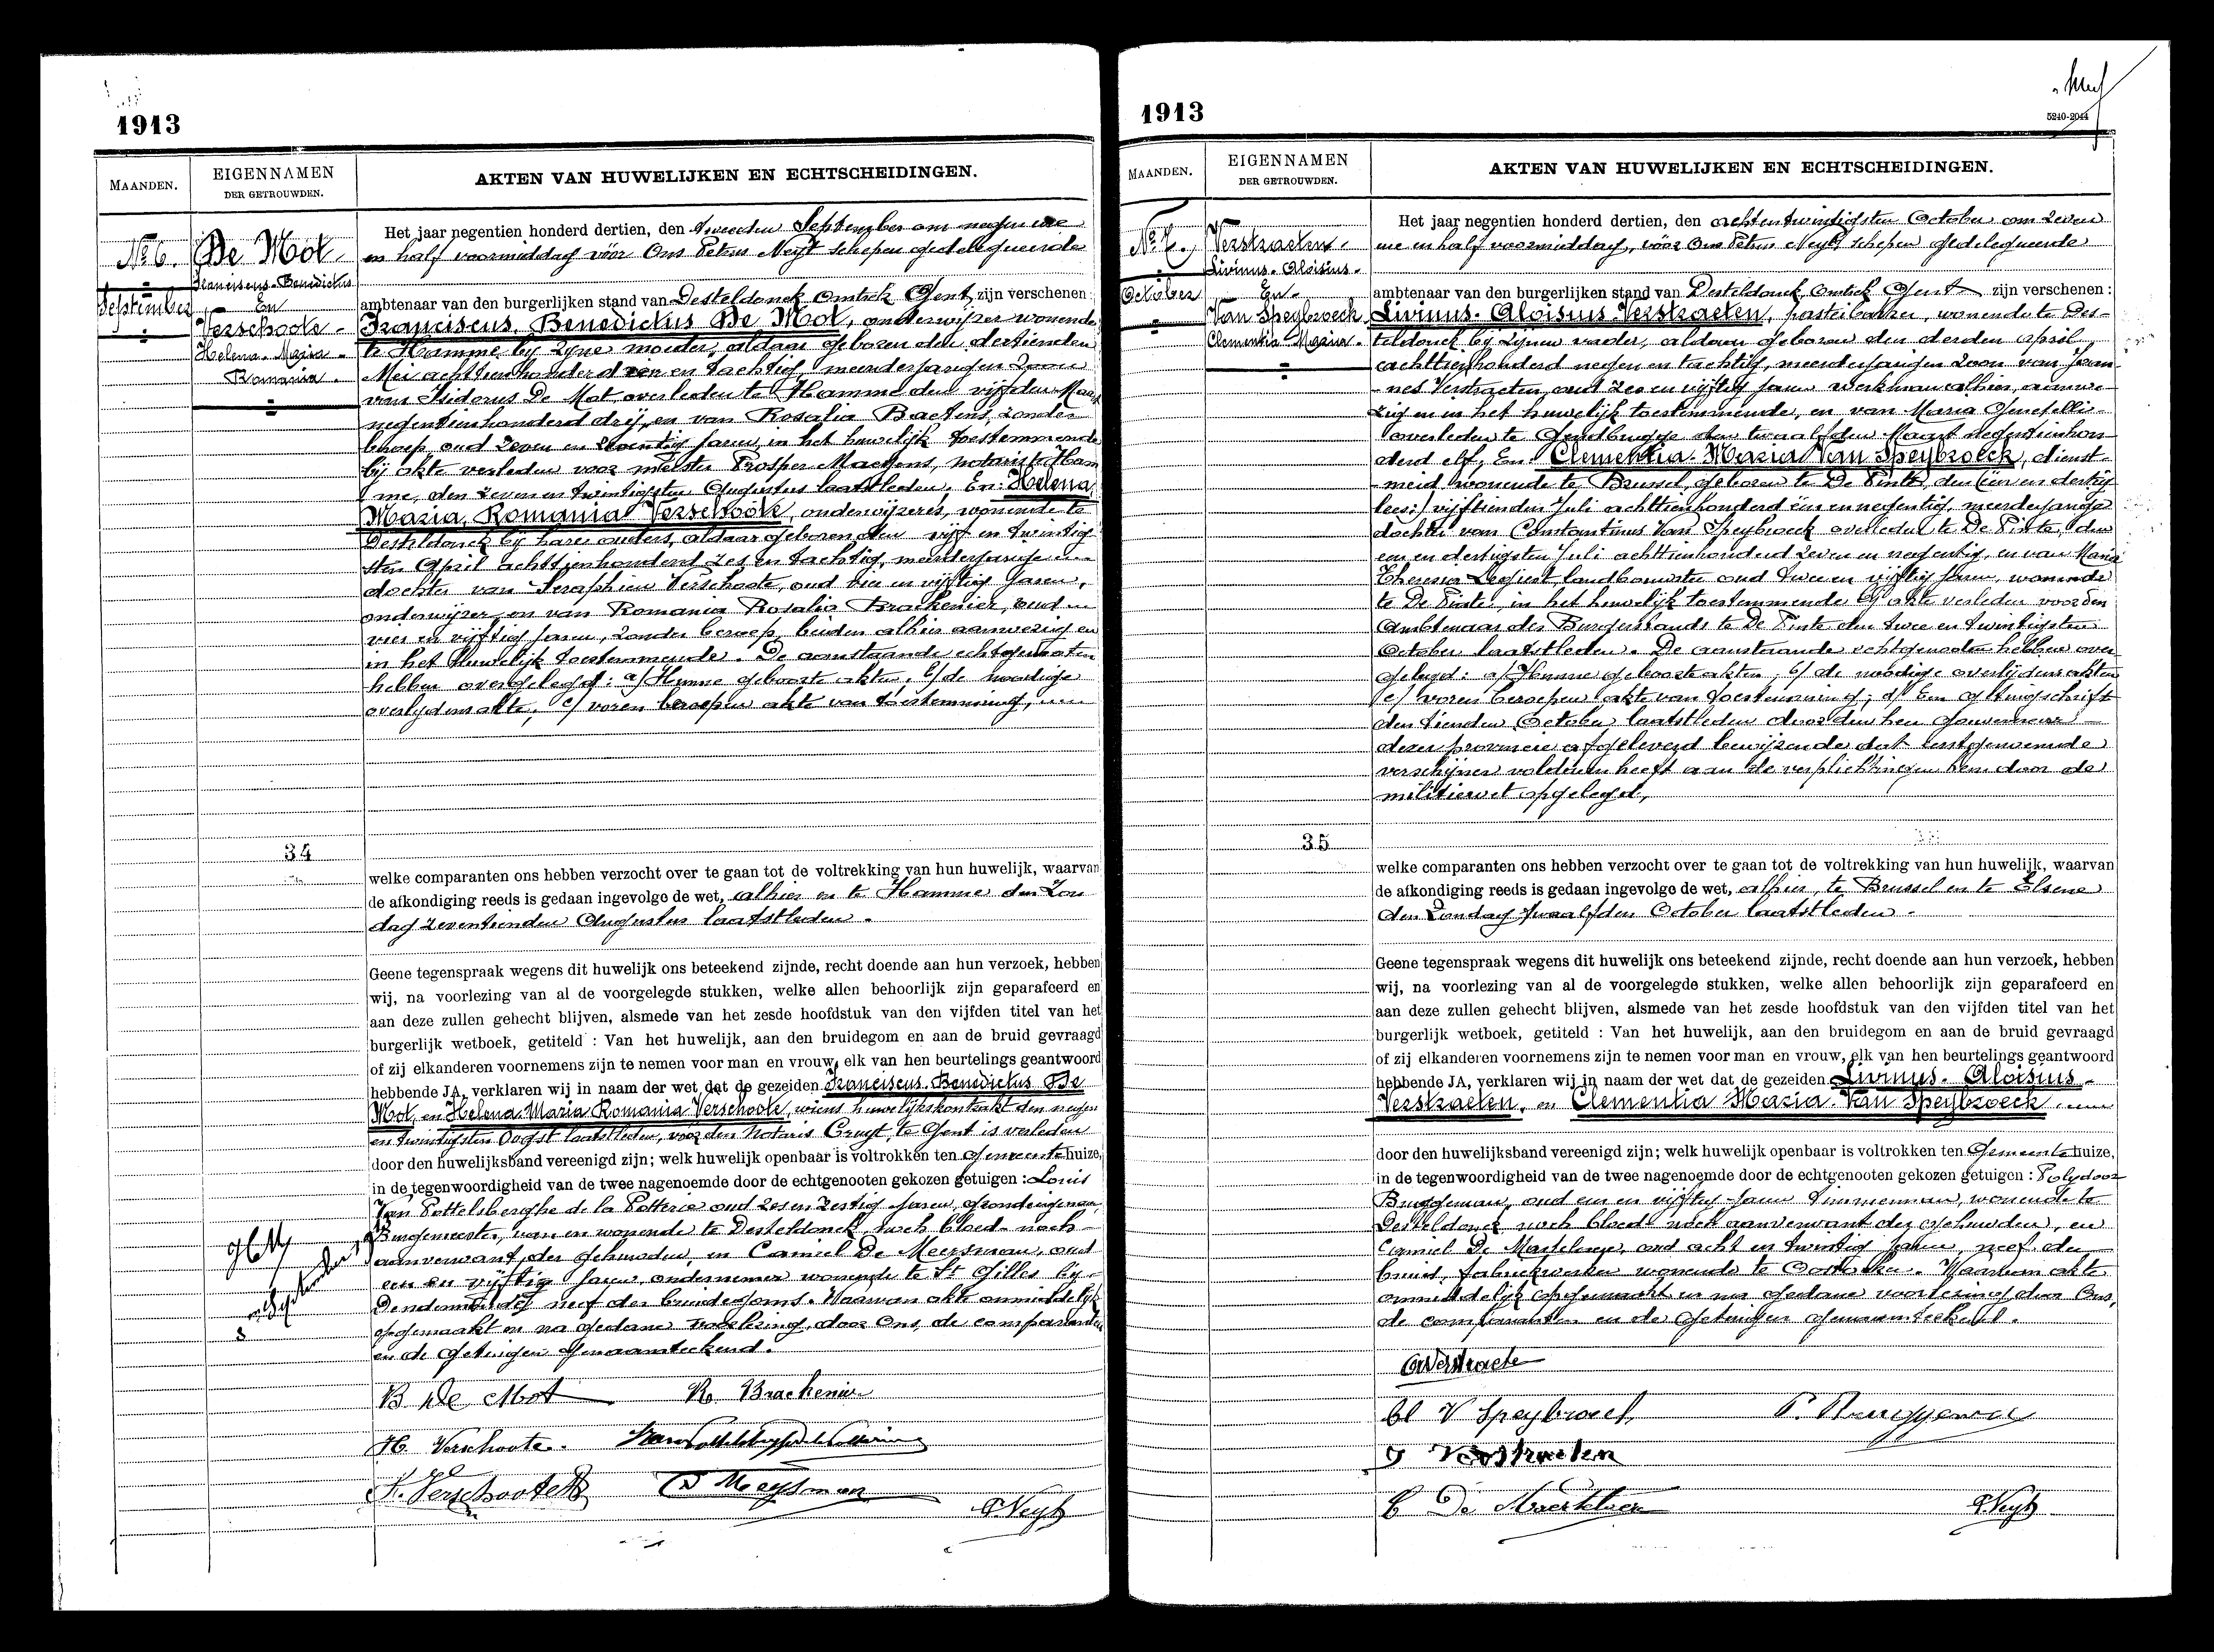 1913
MAANDEN.
EIGENNAMEN
DER GETROUWDEN.
AKTEN VAN HUWELIJKEN EN ECHTSCHEIDINGEN.
N° 6.
De Mot
Franciscus-Benedictus
September
En
Verschoote
Helena-Maria
Romania
Het jaar negentien honderd dertien, den tweeden September om negen ure
en half voormiddag vóór Ons Petrus Neyt schepen gedelegueerde
ambtenaar van den burgerlijken stand van Desteldonck Omtrek Gent, zijn verschenen:
Franciscus, Benedictus De Mot, onderwijzer wonende
te Hamme bij zijne moeder, aldaar geboren den dertienden
Mei achttienhonderd een en tachtig, meerderjarigen zoon
van Isidorus De Mot overleden te Hamme den vijfden Maart
negentienhonderd drij, en van Rosalia Baetens, zonder
beroep, oud zeven en jaren, in het huwelijk toestemmende
bij akte verleden voor meester Prosper Maeyens, notaris te Ham
me, den zeven en twintigsten Augustus laatstleden. En: Helena
Maria, Romania Verschoote, onderwijzeres, wonende te
Desteldonck bij hare ouders, aldaar geboren den vijf en twintig
sten April achttienhonderd zes en tachtig, meerderjarige
dochter van Seraphien Verschoote, oud en vijftig jaren,
onderwijzer, en van Romania Rosalia Brackenier, oud
vier en vijftig jaren, zonder beroep, beiden alhier aanwezig en
in het huwelijk toestemmende. De aanstaande echtgenooten
hebben overgelegd: a/ Hunne geboorte akten, b/ de noodige
overlijdensakte, c/ voren beroepen akte van toestemming,
34
welke comparanten ons hebben verzocht over te gaan tot de voltrekking van hun huwelijk, waarvan
de afkondiging reeds is gedaan ingevolge de wet, alhier en te Hamme den Zon
dag zeventienden Augustus laatstleden.
Geene tegenspraak wegens dit huwelijk ons beteekend zijnde, recht doende aan hun verzoek, hebben
wij, na voorlezing van al de voorgelegde stukken, welke allen behoorlijk zijn geparafeerd en
aan deze zullen gehecht blijven, alsmede van het zesde hoofdstuk van den vijfden titel van het
burgerlijk wetboek, getiteld : Van het huwelijk, aan den bruidegom en aan de bruid gevraagd
of zij elkanderen voornemens zijn te nemen voor man en vrouw, elk van hen beurtelings geantwoord
hebbende JA, verklaren wij in naam der wet dat de gezeiden Franciscus. Benedictus De
Mot, en Helena Maria Romania Verschoote, wiens huwelijkskontrakt den negen
en twintigsten Oogst laatstleden, vóór den Notaris Cruyt, te Gent is verleden
door den huwelijksband vereenigd zijn; welk huwelijk openbaar is voltrokken ten Gemeentehuize,
in de tegenwoordigheid van de twee nagenoemde door de echtgenooten gekozen getuigen : Louis
Van Pottelsberghe de la Potterie oud zes en zestig jaren, grondeigenaar,
Burgemeester, van en wonende te Desteldonck, noch bloed- noch
aanverwant der gehuwden, en Camiel De Meersman, oud
een en vijftig jaren, ondernemer wonende te St Gilles bij
Dendermonde neef des bruidegoms. Waarvan akte onmiddelijk
opgemaakt en na gedane voorlezing, door Ons, de comparanten
en de getuigen genaamteekend.
B De Mot R Brackenier
H. Verschoote.
S. Verschoote
P. Neyt
1913
5240-2044
MAANDEN.
EIGENNAMEN
DER GETROUWDEN.
AKTEN VAN HUWELIJKEN EN ECHTSCHEIDINGEN.
N° 7.
Verstraeten
Livinus-Aloisius
October
En
Van Speybroeck
Clementia-Maria
Het jaar negentien honderd dertien, den achtentwintigsten October om zeven
ure en half voormiddag, vóór Ons Petrus Neyt, schepen gedelegueerde
ambtenaar van den burgerlijken stand van Desteldonck Omtrek Gent zijn verschenen :
Livinus-Aloisius Verstraeten, pasteibakker, wonende te Des-
teldonck bij zijnen vader, aldaar geboren den derden april
achttienhonderd negen en tachtig, meerderjarigen zoon van Joan-
nes Verstraeten, oud zes en vijftig jaren werkman alhier, aanwe-
zig en in het huwelijk toestemmende, en van Maria
overleden te Gendbrugge den twaalfden Maart negentienhon-
derd elf. En: Clementia-Maria Van Speybroeck, dienst-
meid wonende te Brussel, geboren te De Pinte, den (één en dertig
lees:) vijftienden Juli achttienhonderd één en negentig, meerderjarige
dochter van Constantinus Van Speybroeck overleden te De Pinte, den
een en dertigsten Juli achttienhonderd zeven en negentig, en van Maria
Theresia landbouwster oud twee en vijftig jaren, wonende
te De Pinte, in het huwelijk toestemmende bij akte verleden voor den
Ambtenaar des Burgerstands te De Pinte den twee en twintigsten
October laatstleden. De aanstaande echtgenooten hebben over-
gelegd: a/ Hunne geboorteakten, b/ de noodige overlijdensakten
c/ voren beroepen akte van toestemming; d/ Een getuigschrift
den tienden October laatstleden door den heer Gouverneur
dezer provincie afgeleverd bewijzende dat eerstgenoemde
verschijner voldaan heeft aan de verplichtingen hem door de
militiewet opgelegd,
35
welke comparanten ons hebben verzocht over te gaan tot de voltrekking van hun huwelijk, waarvan
de afkondiging reeds is gedaan ingevolge de wet, alhier, te Brussel en te Elsene
den Zondag twaalfden October laatstleden.
Geene tegenspraak wegens dit huwelijk ons beteekend zijnde, recht doende aan hun verzoek, hebben
wij, na voorlezing van al de voorgelegde stukken, welke allen behoorlijk zijn geparafeerd en
aan deze zullen gehecht blijven, alsmede van het zesde hoofdstuk van den vijfden titel van het
burgerlijk wetboek, getiteld : Van het huwelijk, aan den bruidegom en aan de bruid gevraagd
of zij elkanderen voornemens zijn te nemen voor man en vrouw, elk van hen beurtelings geantwoord
hebbende JA, verklaren wij in naam der wet dat de gezeiden Livinus-Aloisius
Verstraeten, en Clementia Maria Van Speybroeck
door den huwelijksband vereenigd zijn; welk huwelijk openbaar is voltrokken ten Gemeentehuize,
in de tegenwoordigheid van de twee nagenoemde door de echtgenooten gekozen getuigen : Polydoor
Bruggeman, oud een en vijftig jaren timmerman, wonende te
Desteldonck noch bloed- noch aanverwant der gehuwden, en
Camiel De oud acht en twintig jaren, neef der
bruid, fabriekwerker wonende te Oostakker. Waarvan akte
onmiddelijk opgemaakt en na gedane voorlezing, door Ons,
de comparanten en de getuigen genaamteekend.
Cl V Speybroeck P. Bruggeman
J Verstraeten
P. Neyt